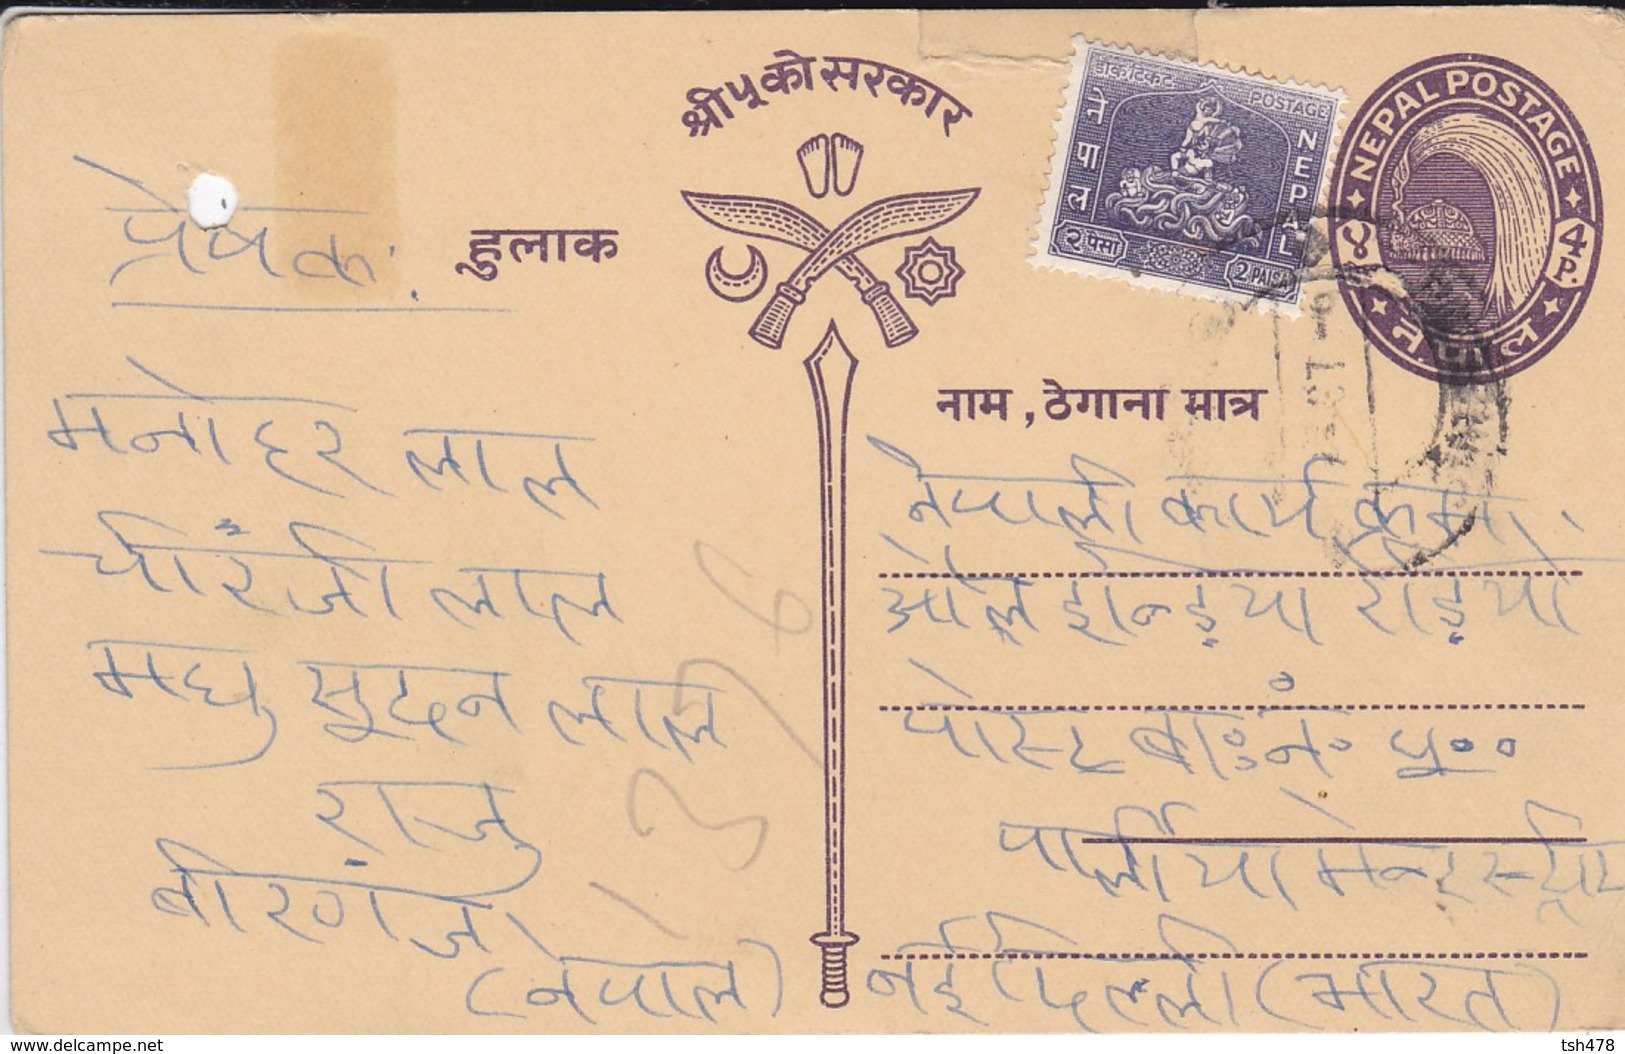 श्री ५ को सरकार
हुलाक
डाक टिकट POSTAGE
नेपाल
NEPAL
२ पैसा
2 PAISA
NEPAL POSTAGE
४
4 P.
नेपाल
नाम, ठेगाना मात्र
प्रेषक:
मनोहर लाल
चीरंजी लाल
मधु सुदन लाल
राजु
बीरगंज
(नेपाल)
नेपाली कार्य क्रममा
ओल ईन्डिया रेडियो
पोस्ट बा॰ नं॰ ५००
पार्लीयामेन्ट स्ट्रीट
नई दिल्ली (भारत)
delcampe.net
tsh478